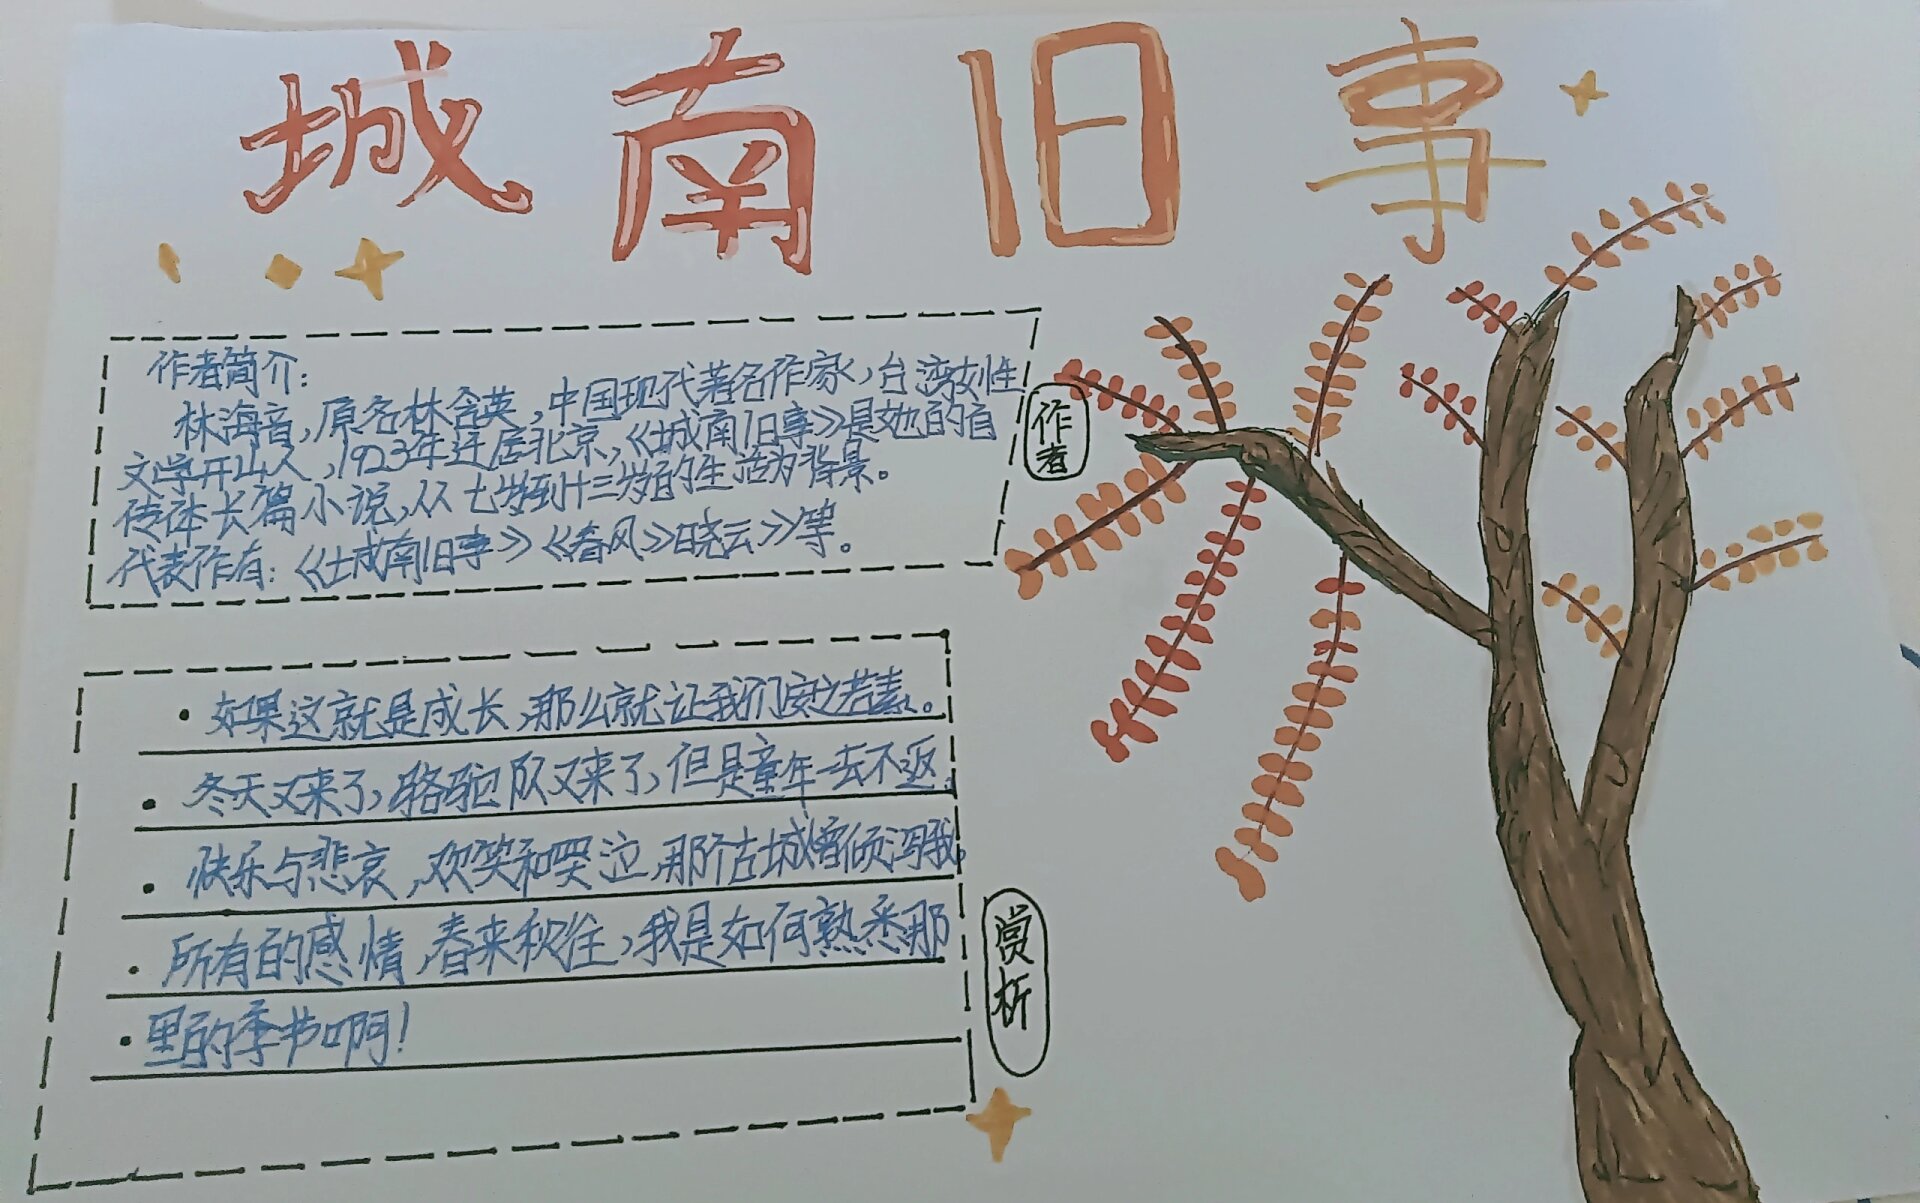 城南旧事
作者简介:
林海音,原名林含英,中国现代著名作家,台湾女性
文学开山人,1923年迁居北京,《城南旧事》是她的自
传体长篇小说,从七岁到十三岁的生活为背景。
代表作有:《城南旧事》《春风》晓云》等。
作者
· 如果这就是成长,那么就让我们安之若素。
· 冬天又来了,骆驼队又来了,但是童年一去不返。
· 快乐与悲哀,欢笑和哭泣,那个古城曾倾泻我,
· 所有的感情,春来秋往,我是如何熟悉那
· 里的季节啊!
赏析